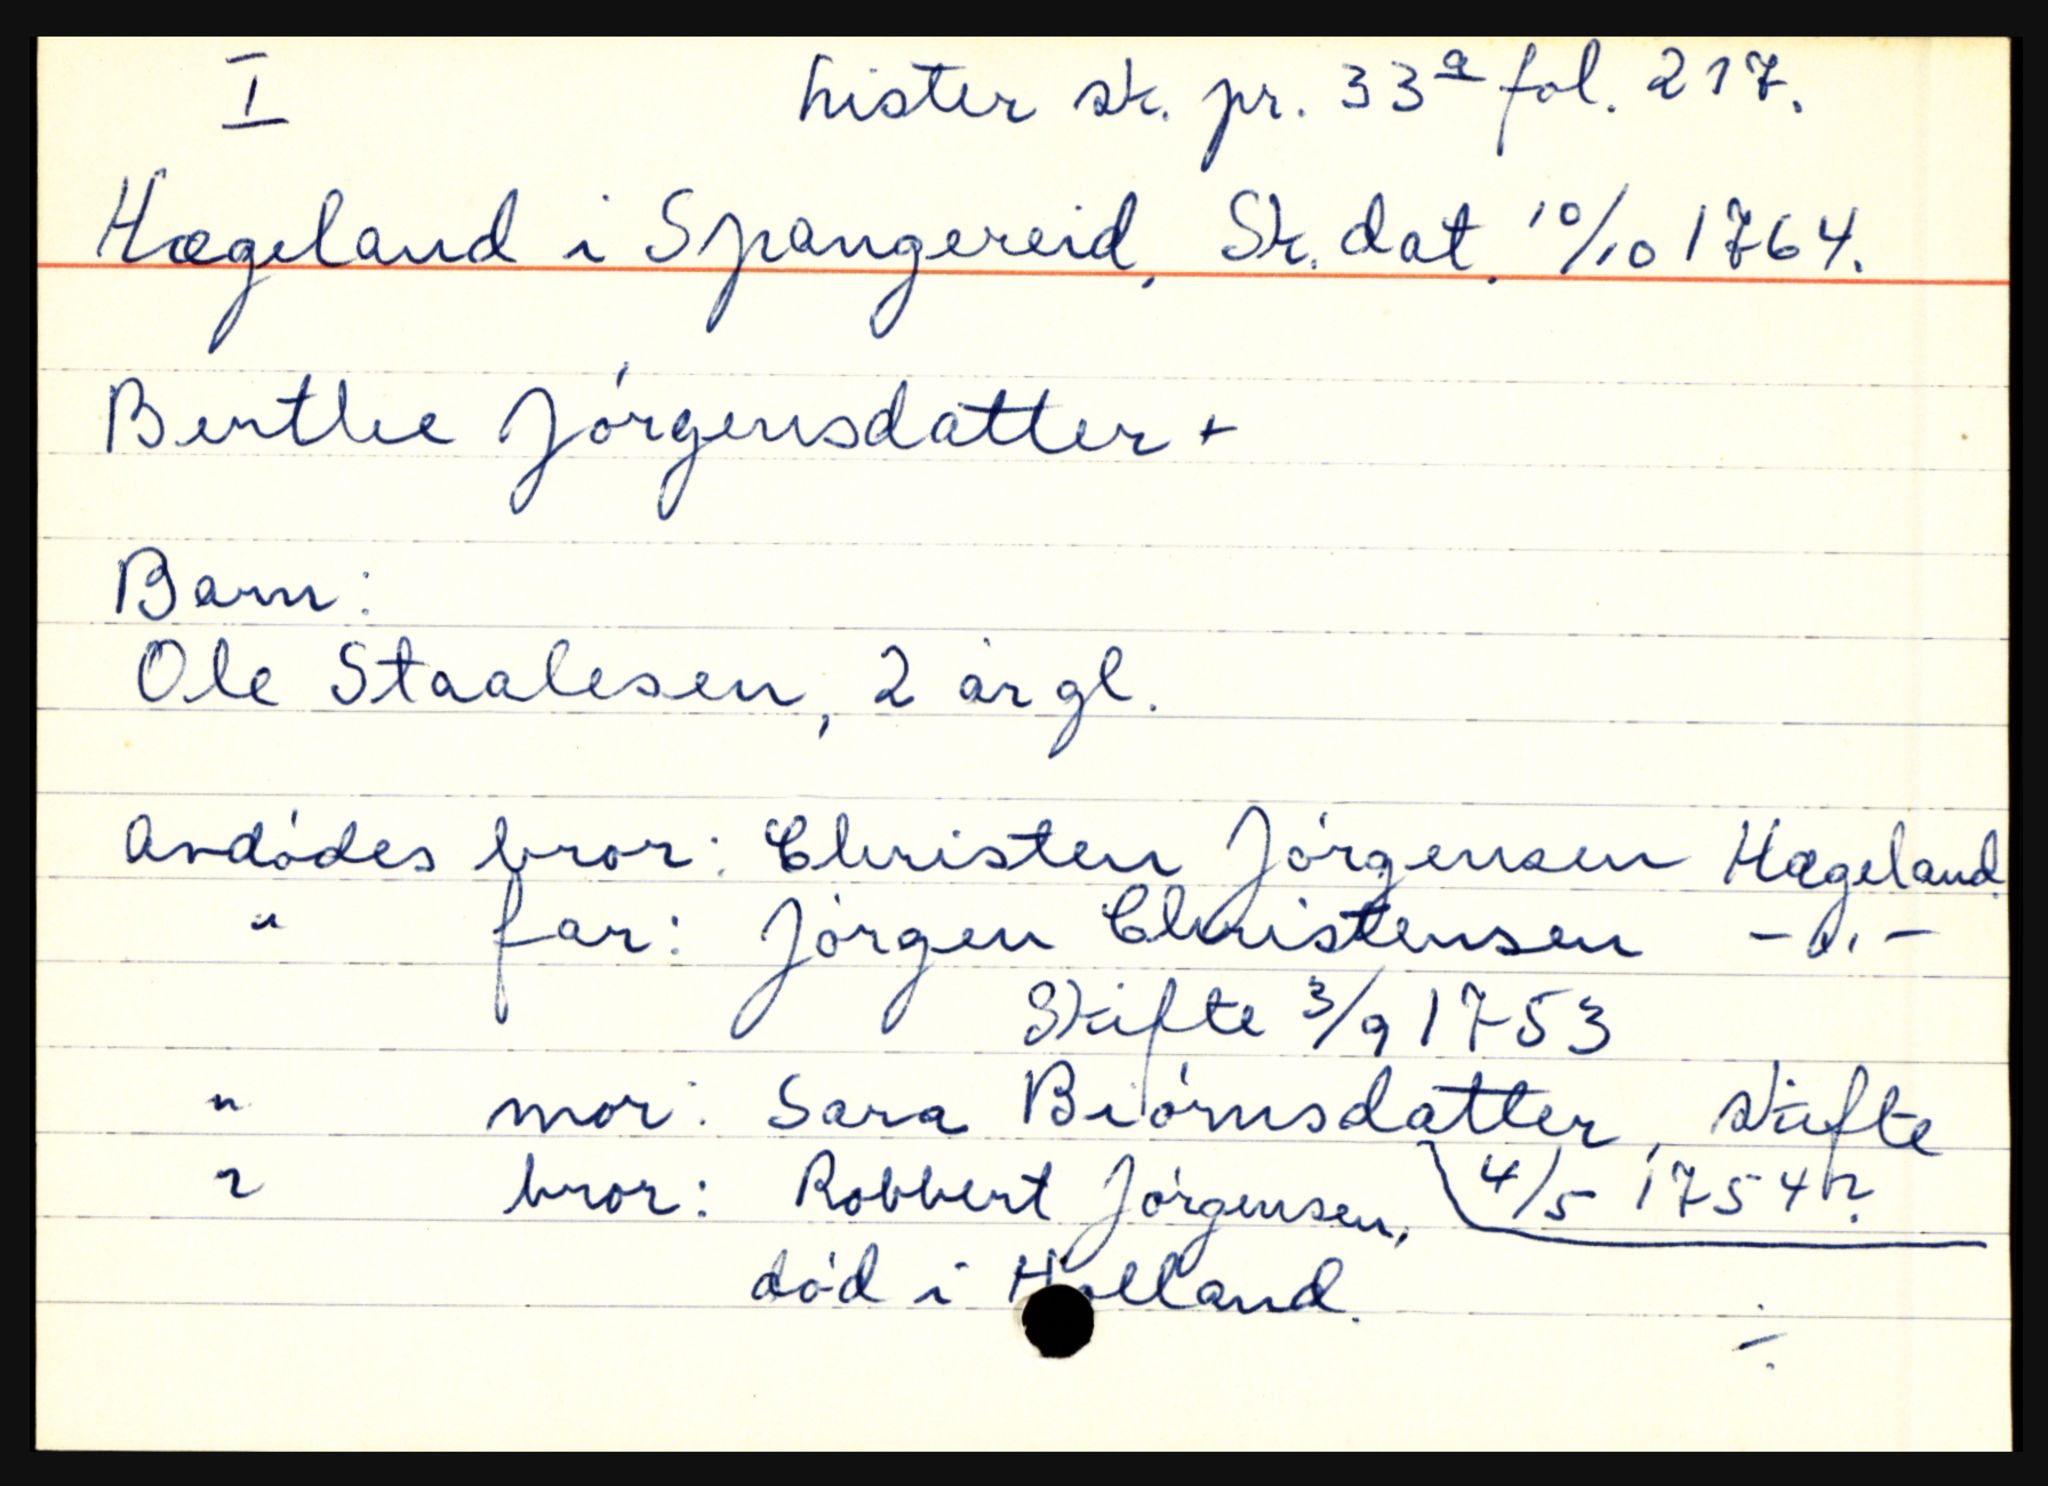 I Lister sk. pr. 33a fol. 217.
Hægeland i Spangereid, Sk. dat. 10/10 1764.
Berthe Jórgensdatter +
Barn:
Ole Staalesen, 2 år gl.
Avdódes bror: Christen Jórgensen Hægeland.
" far: Jórgen Christensen - " -
Skifte 3/9 1753
" mor: Sara Biórnsdatter, skifte
4/5 1754
" bror: Robbert Jórgensen,
dód i Holland.